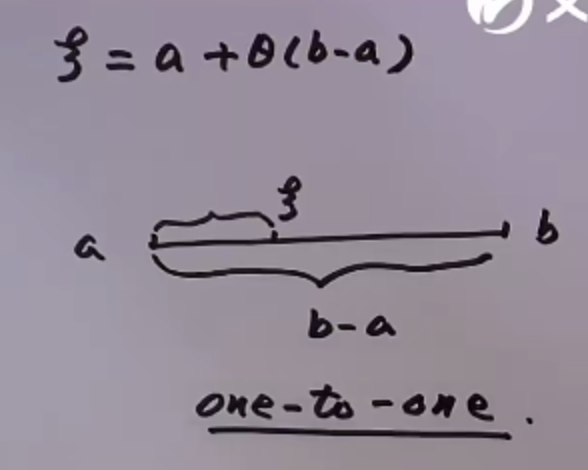 ξ = a + θ(b-a)
ξ
a b
b-a
one-to-one.